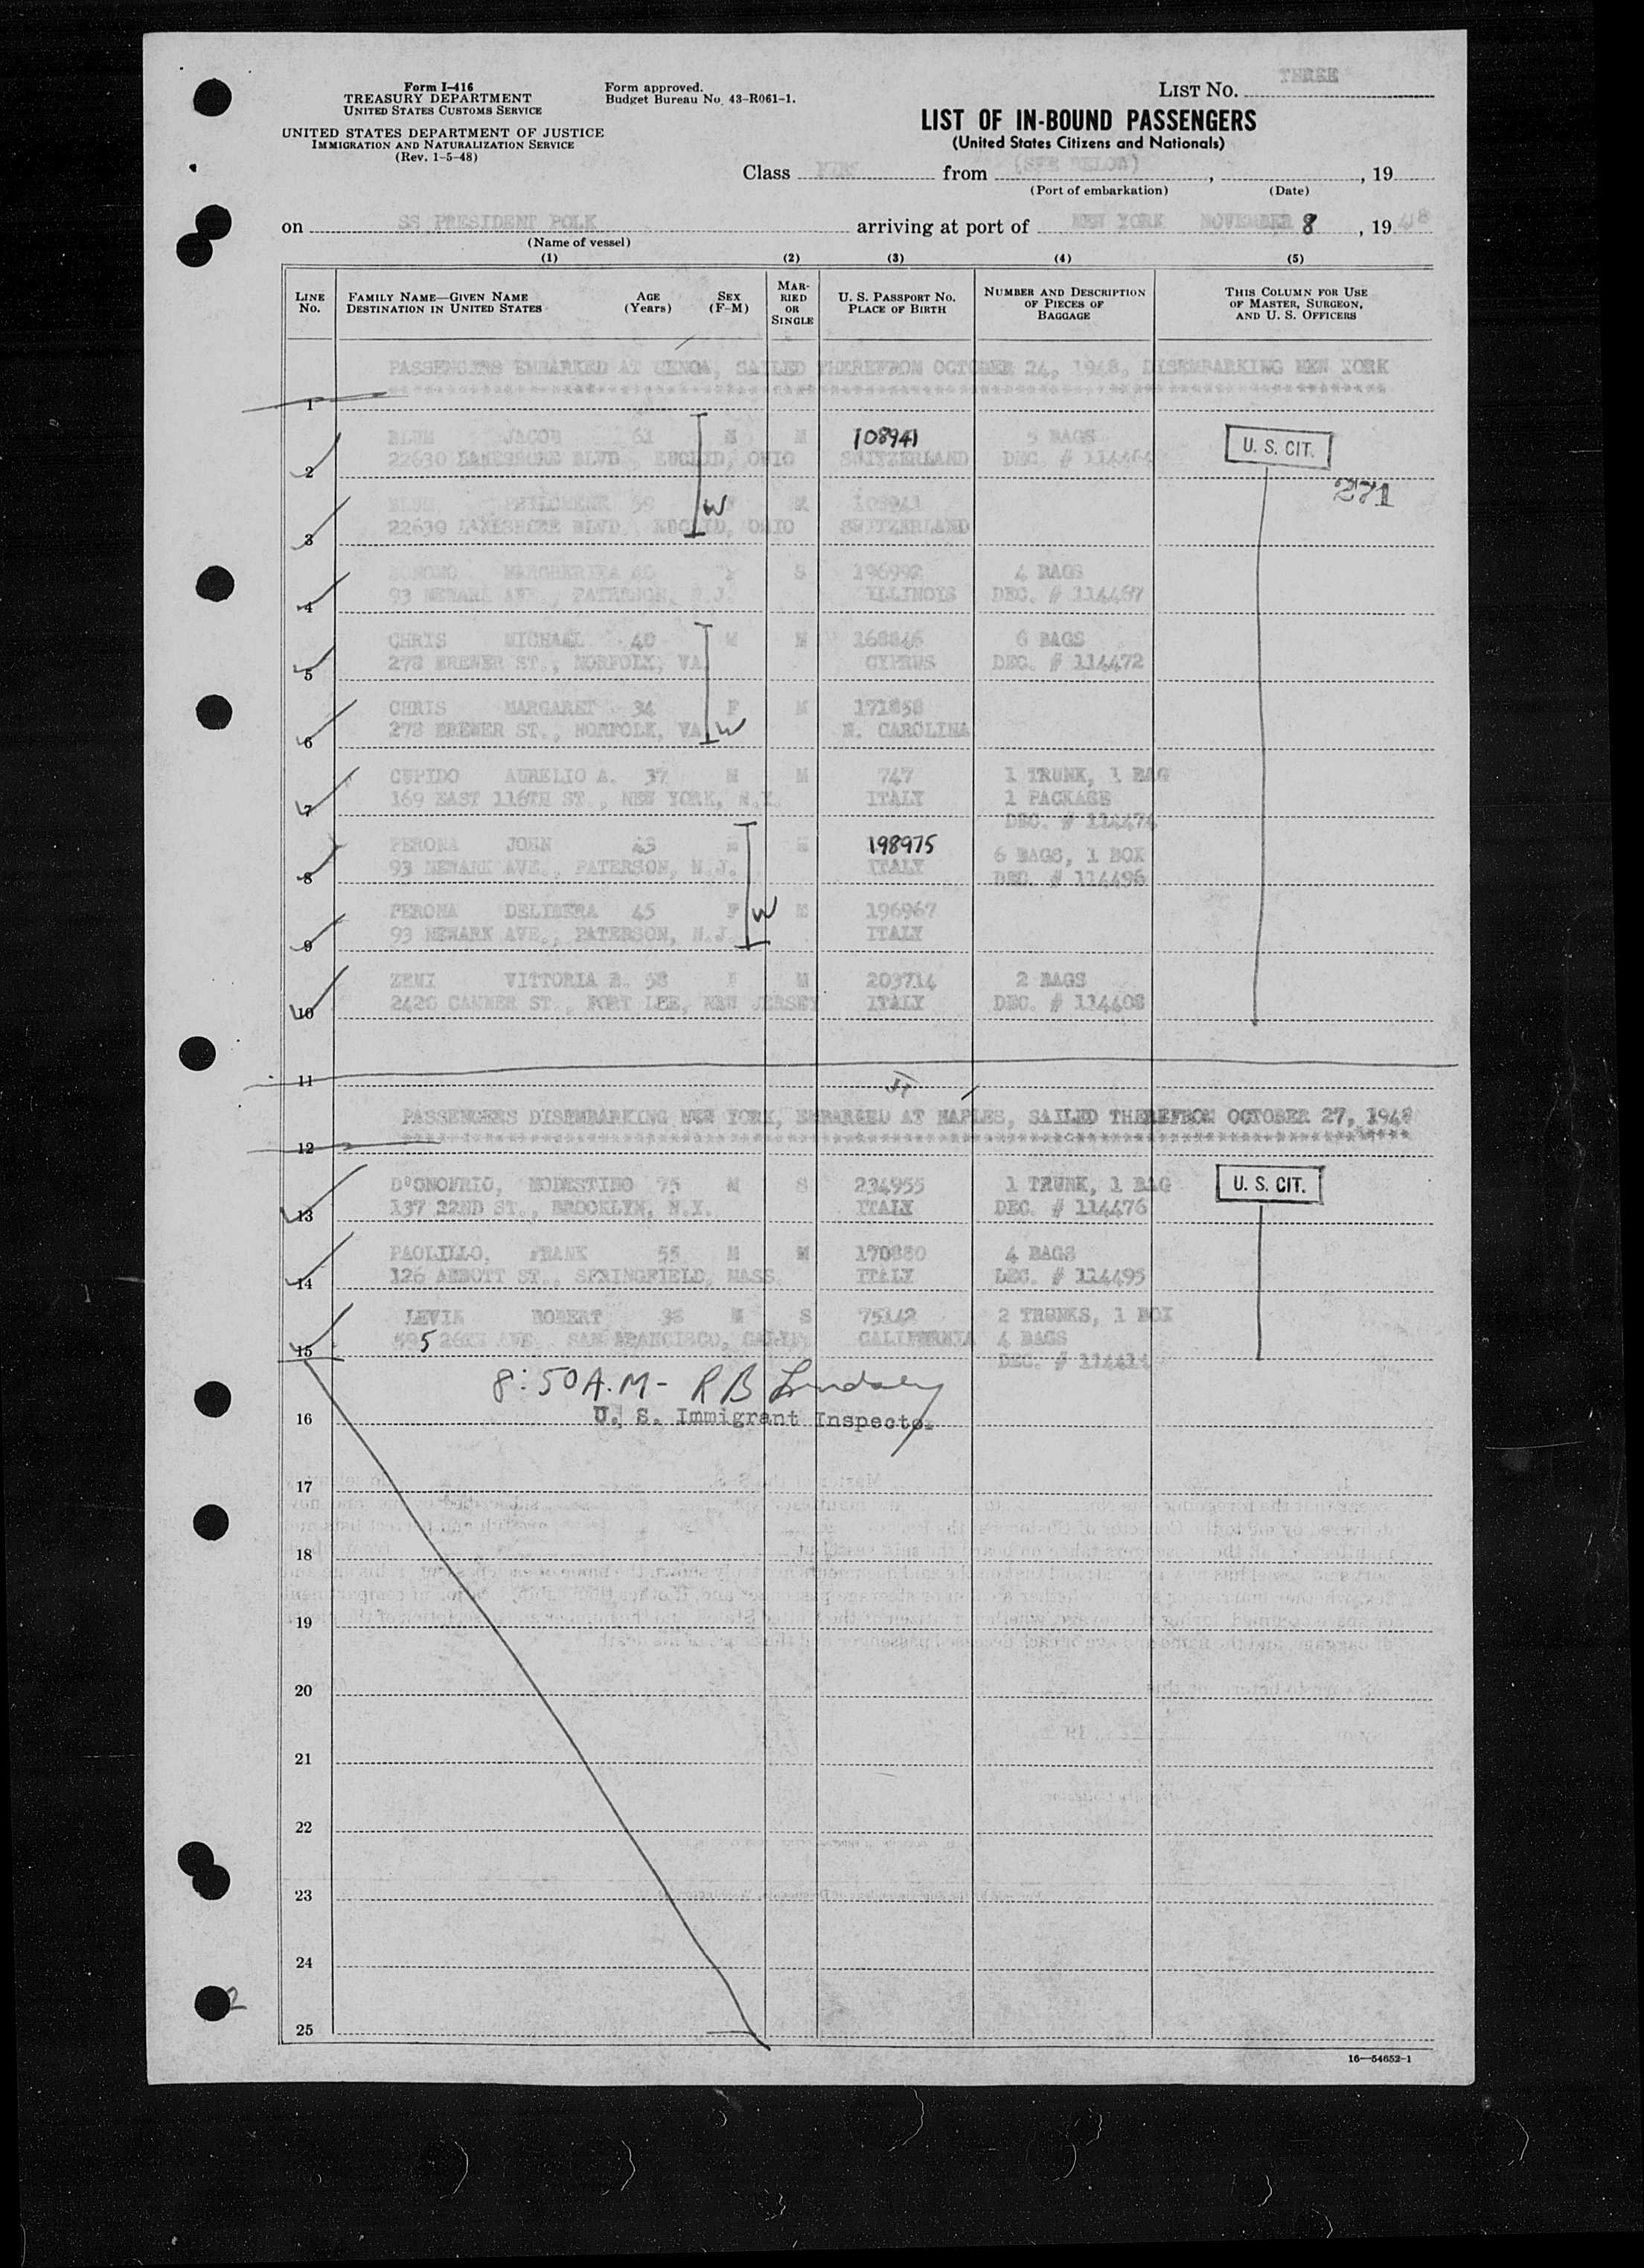 Form I-416
TREASURY DEPARTMENT
UNITED STATES CUSTOMS SERVICE
UNITED STATES DEPARTMENT OF JUSTICE
IMMIGRATION AND NATURALIZATION SERVICE
(Rev. 1-5-48)
Form approved.
Budget Bureau No. 43-R061-1.
LIST NO. THREE
LIST OF IN-BOUND PASSENGERS
(United States Citizens and Nationals)
Class from (SEE BELOW), , 19
(Port of embarkation) (Date)
on SS PRESIDENT POLK arriving at port of NEW YORK NOVEMBER 8, 1948
(Name of vessel)
(1) (2) (3) (4) (5)
LINE NO. FAMILY NAME—GIVEN NAME DESTINATION IN UNITED STATES AGE (Years) SEX (F-M) MARRIED OR SINGLE U. S. PASSPORT NO. PLACE OF BIRTH NUMBER AND DESCRIPTION OF PIECES OF BAGGAGE THIS COLUMN FOR USE OF MASTER, SURGEON, AND U. S. OFFICERS
PASSENGERS EMBARKED AT GENOA, SAILED THEREFROM OCTOBER 24, 1948, DISEMBARKING NEW YORK
1
BLUM JACOB 61 M M 108941 5 BAGS U. S. CIT.
2 22630 LAKESHORE BLVD, EUCLID, OHIO SWITZERLAND DEC. #
271
BLUM 59 F M 108941
3 22630 LAKESHORE BLVD, EUCLID, OHIO SWITZERLAND
W
MARGHERITA 40 S 196992 4 BAGS
4 93 NEWARK AVE., PATERSON, N.J. ILLINOIS DEC. # 114467
CHRIS MICHAEL 40 M M 168846 6 BAGS
5 278 BREWER ST., NORFOLK, VA CYPRUS DEC. # 114472
CHRIS MARGARET 34 F M 171858
6 278 BREWER ST., NORFOLK, VA W N. CAROLINA
CUPIDO AURELIO A. 37 M M 747 1 TRUNK, 1 BAG
7 169 EAST 116TH ST., NEW YORK, N.Y. ITALY 1 PACKAGE
DEC. # 114474
PERONA JOHN 43 M M 198975 6 BAGS, 1 BOX
8 93 NEWARK AVE., PATERSON, N.J. ITALY DEC. # 114496
PERONA 45 F W M 196967
9 93 NEWARK AVE., PATERSON, N.J. ITALY
VITTORIA 58 F M 203714 2 BAGS
10 ST., FORT LEE, NEW JERSEY ITALY DEC. # 114408
11
PASSENGERS DISEMBARKING NEW YORK, EMBARKED AT NAPLES, SAILED THEREFROM OCTOBER 27, 1948
12
D'ONOFRIO, MODESTINO 75 M S 234955 1 TRUNK, 1 BAG U. S. CIT.
13 137 22ND ST., BROOKLYN, N.Y. ITALY DEC. # 114476
PAOLILLO, FRANK 55 M M 170880 4 BAGS
14 126 ABBOTT ST., SPRINGFIELD, MASS. ITALY DEC. # 114495
ROBERT 38 M S 75142 2 TRUNKS, 1 BOX
15 595 26TH AVE. SAN FRANCISCO, CALIF. CALIFORNIA 4 BAGS
DEC. # 114414
8:50 A.M- R B Lindsey
16 U. S. Immigrant Inspector
17
18
19
20
21
22
23
24
2
25
16—54652-1